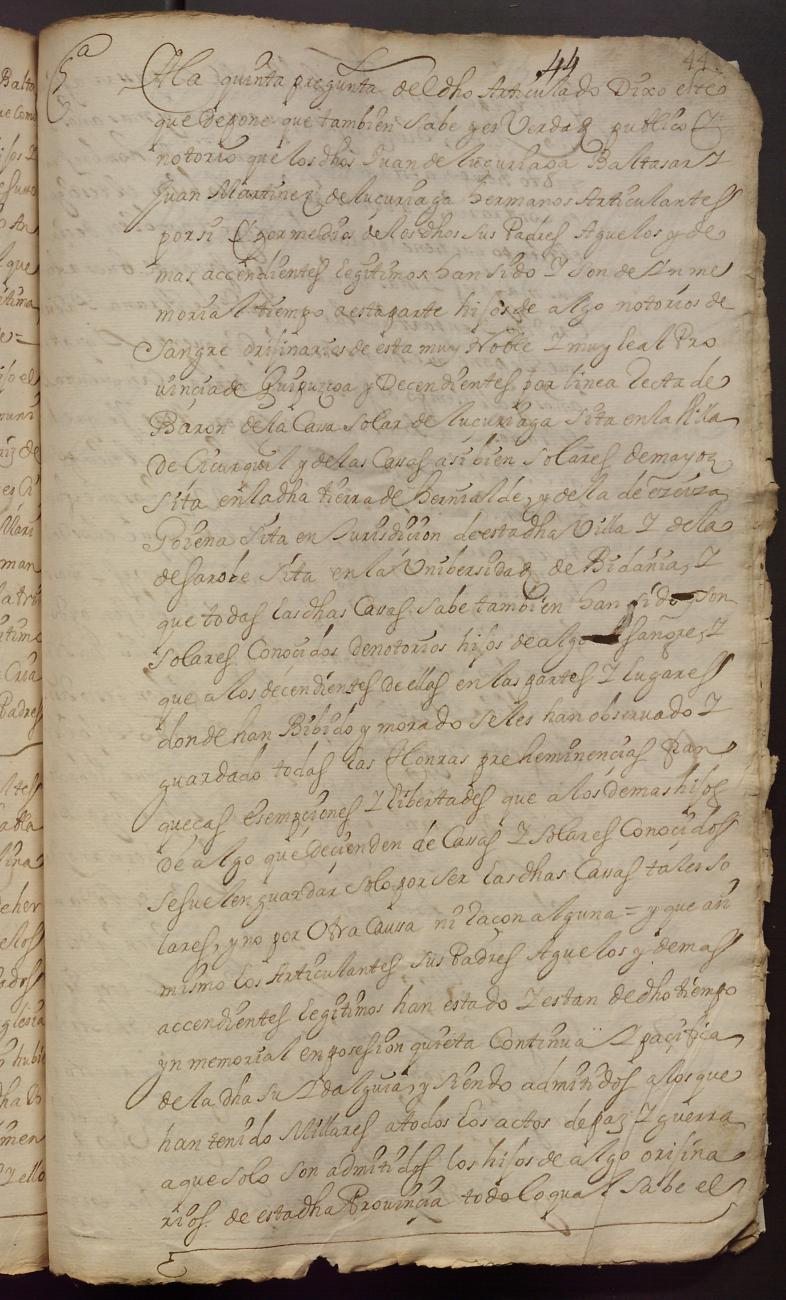 44 44
5ª A la quinta pregunta del dho Articulado Dixo el tgo
que depone que tambien Sabe y es Verdad publico Y
notorio que los dhos Juan de lucuriaga Baltasar Y
Juan Martinez de lucuriaga hermanos Articulantes
por si Y por medio de los dhos sus Padres Aguelos y de
mas accendientes legitimos han sido Y son de Yn me
morial tiempo a esta parte hijos de algo notorios de
Sangre orijinarios de esta muy Noble Y muy leal Pro
uincia de Guipuzcoa y Decendientes por linea recta de
Baron de la Cassa Solar de lucuriaga sita en la Villa
de Cicurquil y de las Cassas asi bien Solares de mayoz
Sita en la dha tierra de hernialde, y de la de
Goiena sita en Jurisdicion de esta dha Villa Y de la
de Sarobe Sita en la Unibersidad de Bidania, Y
que todas las dhas Cassas Sabe tambien han sido y son
Solares Conocidos de notorios hijos de algo sangre, Y
que a los decendientes de ellas en las partes Y lugares
donde han Bibido y morado se les han observado Y
guardado todas las Honras preheminencias fran
quecas esempciones Y libertades que a los demas hijos
de algo que decienden de Cassas Y Solares Conocidos
se suelen guardar solo por ser las dhas Cassas tales so
lares, y no por Otra Caussa ni racon alguna = y que asi
mismo los Articulantes sus Padres Aguelos y demas
accendientes legitimos han estado Y estan de dho tiempo
yn memorial en posesion quieta Continua Y pacifica
de la dha su Ydalguia, y siendo admitidos a los que
han tenido Millares a todos los actos de paz Y guerra
a que solo son admitidos los hijos de algo orijina
rios de esta dha Prouincia todo lo qual Sabe el